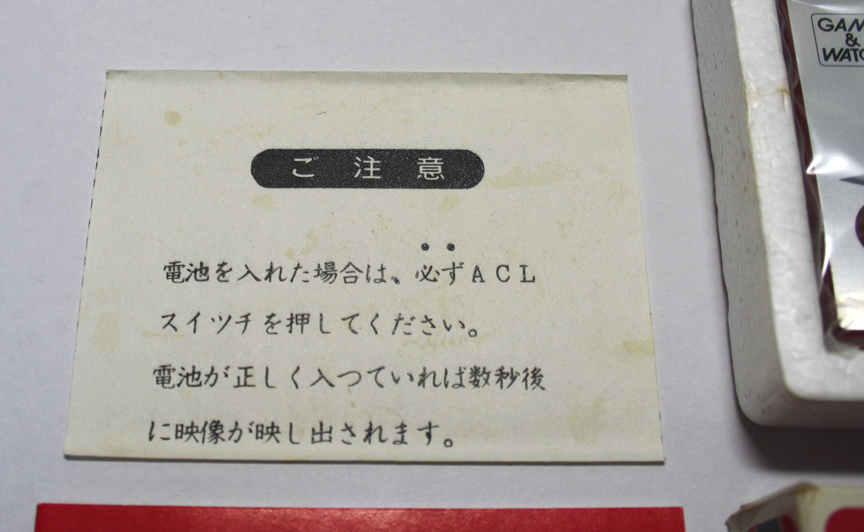 ご注意
電池を入れた場合は、必ずACL
スイツチを押してください。
電池が正しく入つていれば数秒後
に映像が映し出されます。
&